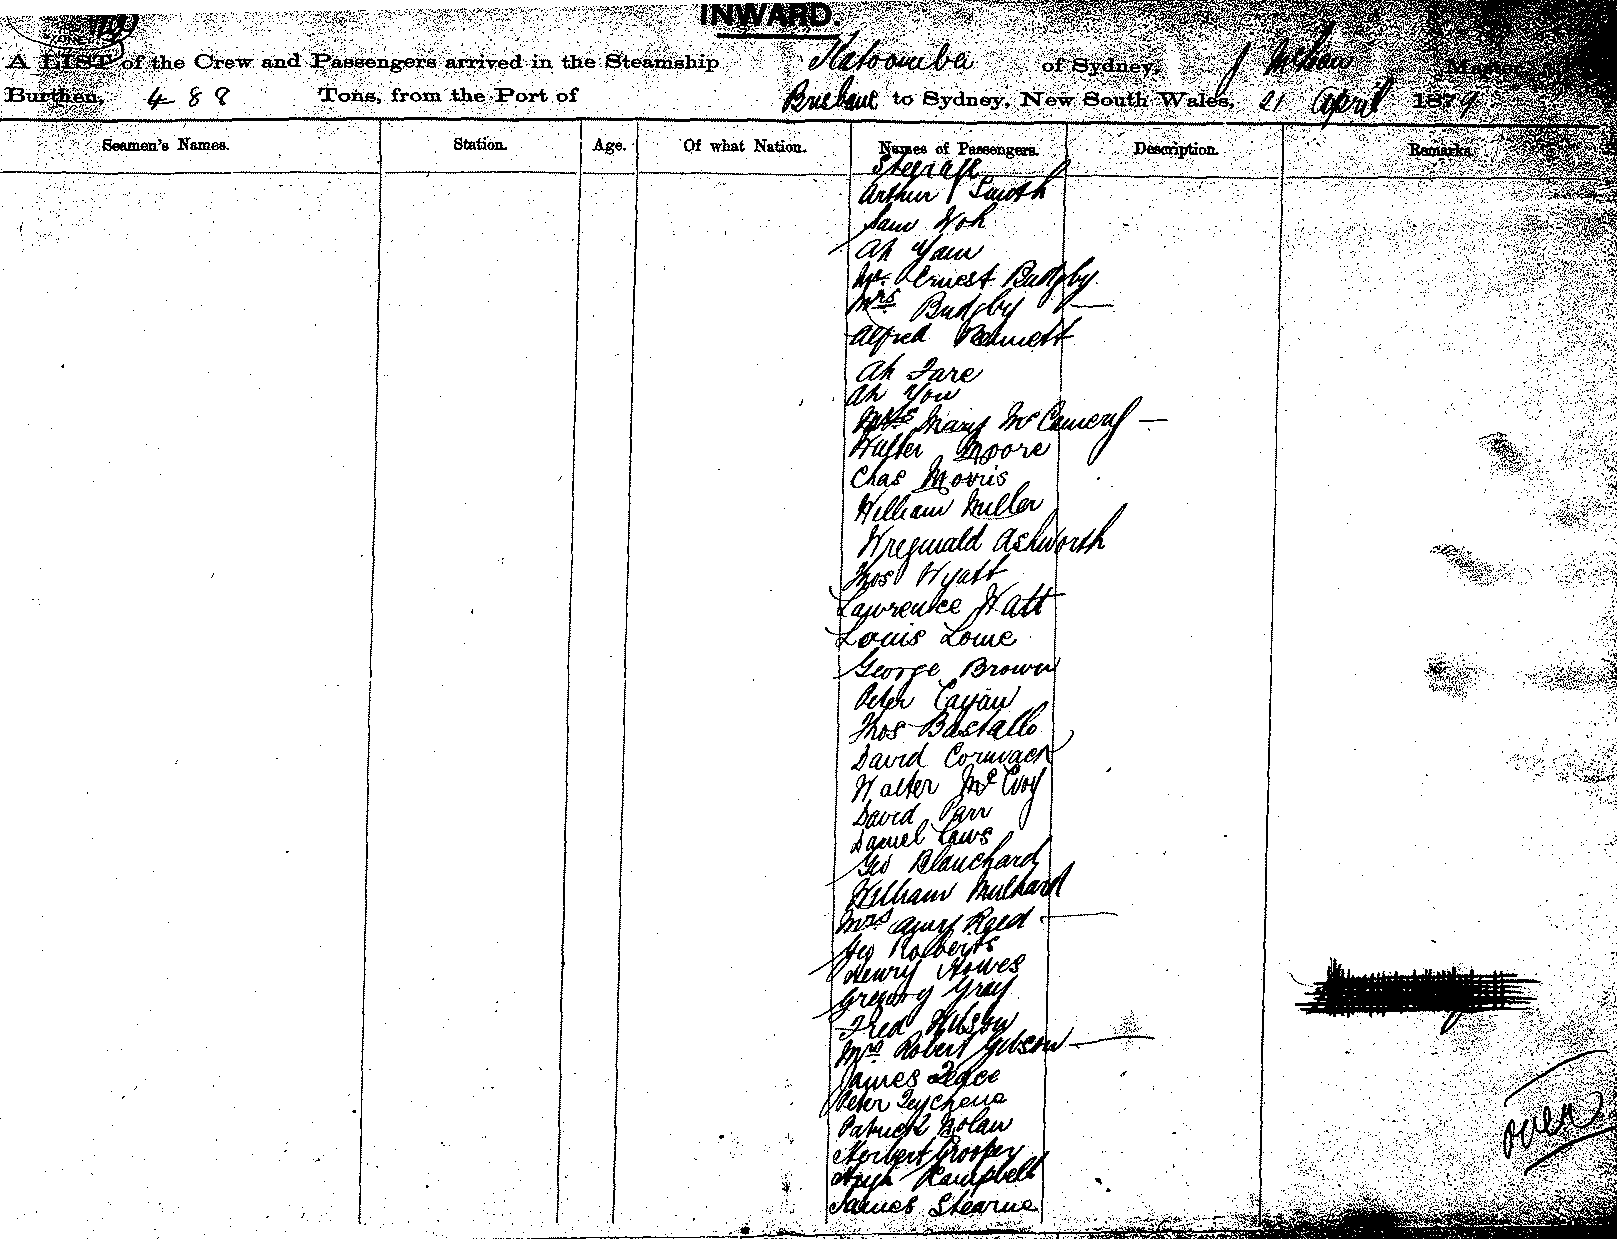 INWARD.
A LIST of the Crew and Passengers arrived in the Steamship Katoomba of Sydney, J McLean Master
Burthen, 488 Tons, from the Port of Brisbane to Sydney, New South Wales, 21 April 1879
Seamen's Names. Station. Age. Of what Nation. Names of Passengers. Description. Remarks.
Steerage
Arthur Smith
Sam Woh
Ah Yam
Mr Ernest Budgby
Mrs Budgby —
Alfred Bennett
Ah Fare
Ah You
Mrs Mary McCamery —
Walter Moore
Chas Morris
William Miller
Wreginald Ashworth
Thos Wyatt
Lawrence Watt
Louis Lowe
George Brown
Peter
Thos Bastallo
David Cormack
Walter McEvoy
David Parr
Daniel Laws
Geo Blanchard
William Milhard
Mrs Reed —
Geo Roberts
Henry Howes
Gregory Gray
Fred Wilson
Mrs Robert Gibson —
James Peace
Peter Teychena
Patrick Nolan
Herbert Crossley
Hugh Campbell
James Stearne
over